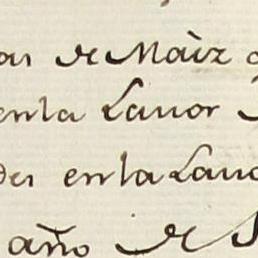 de Maiz
enla Lavor
enla Lavo
año de